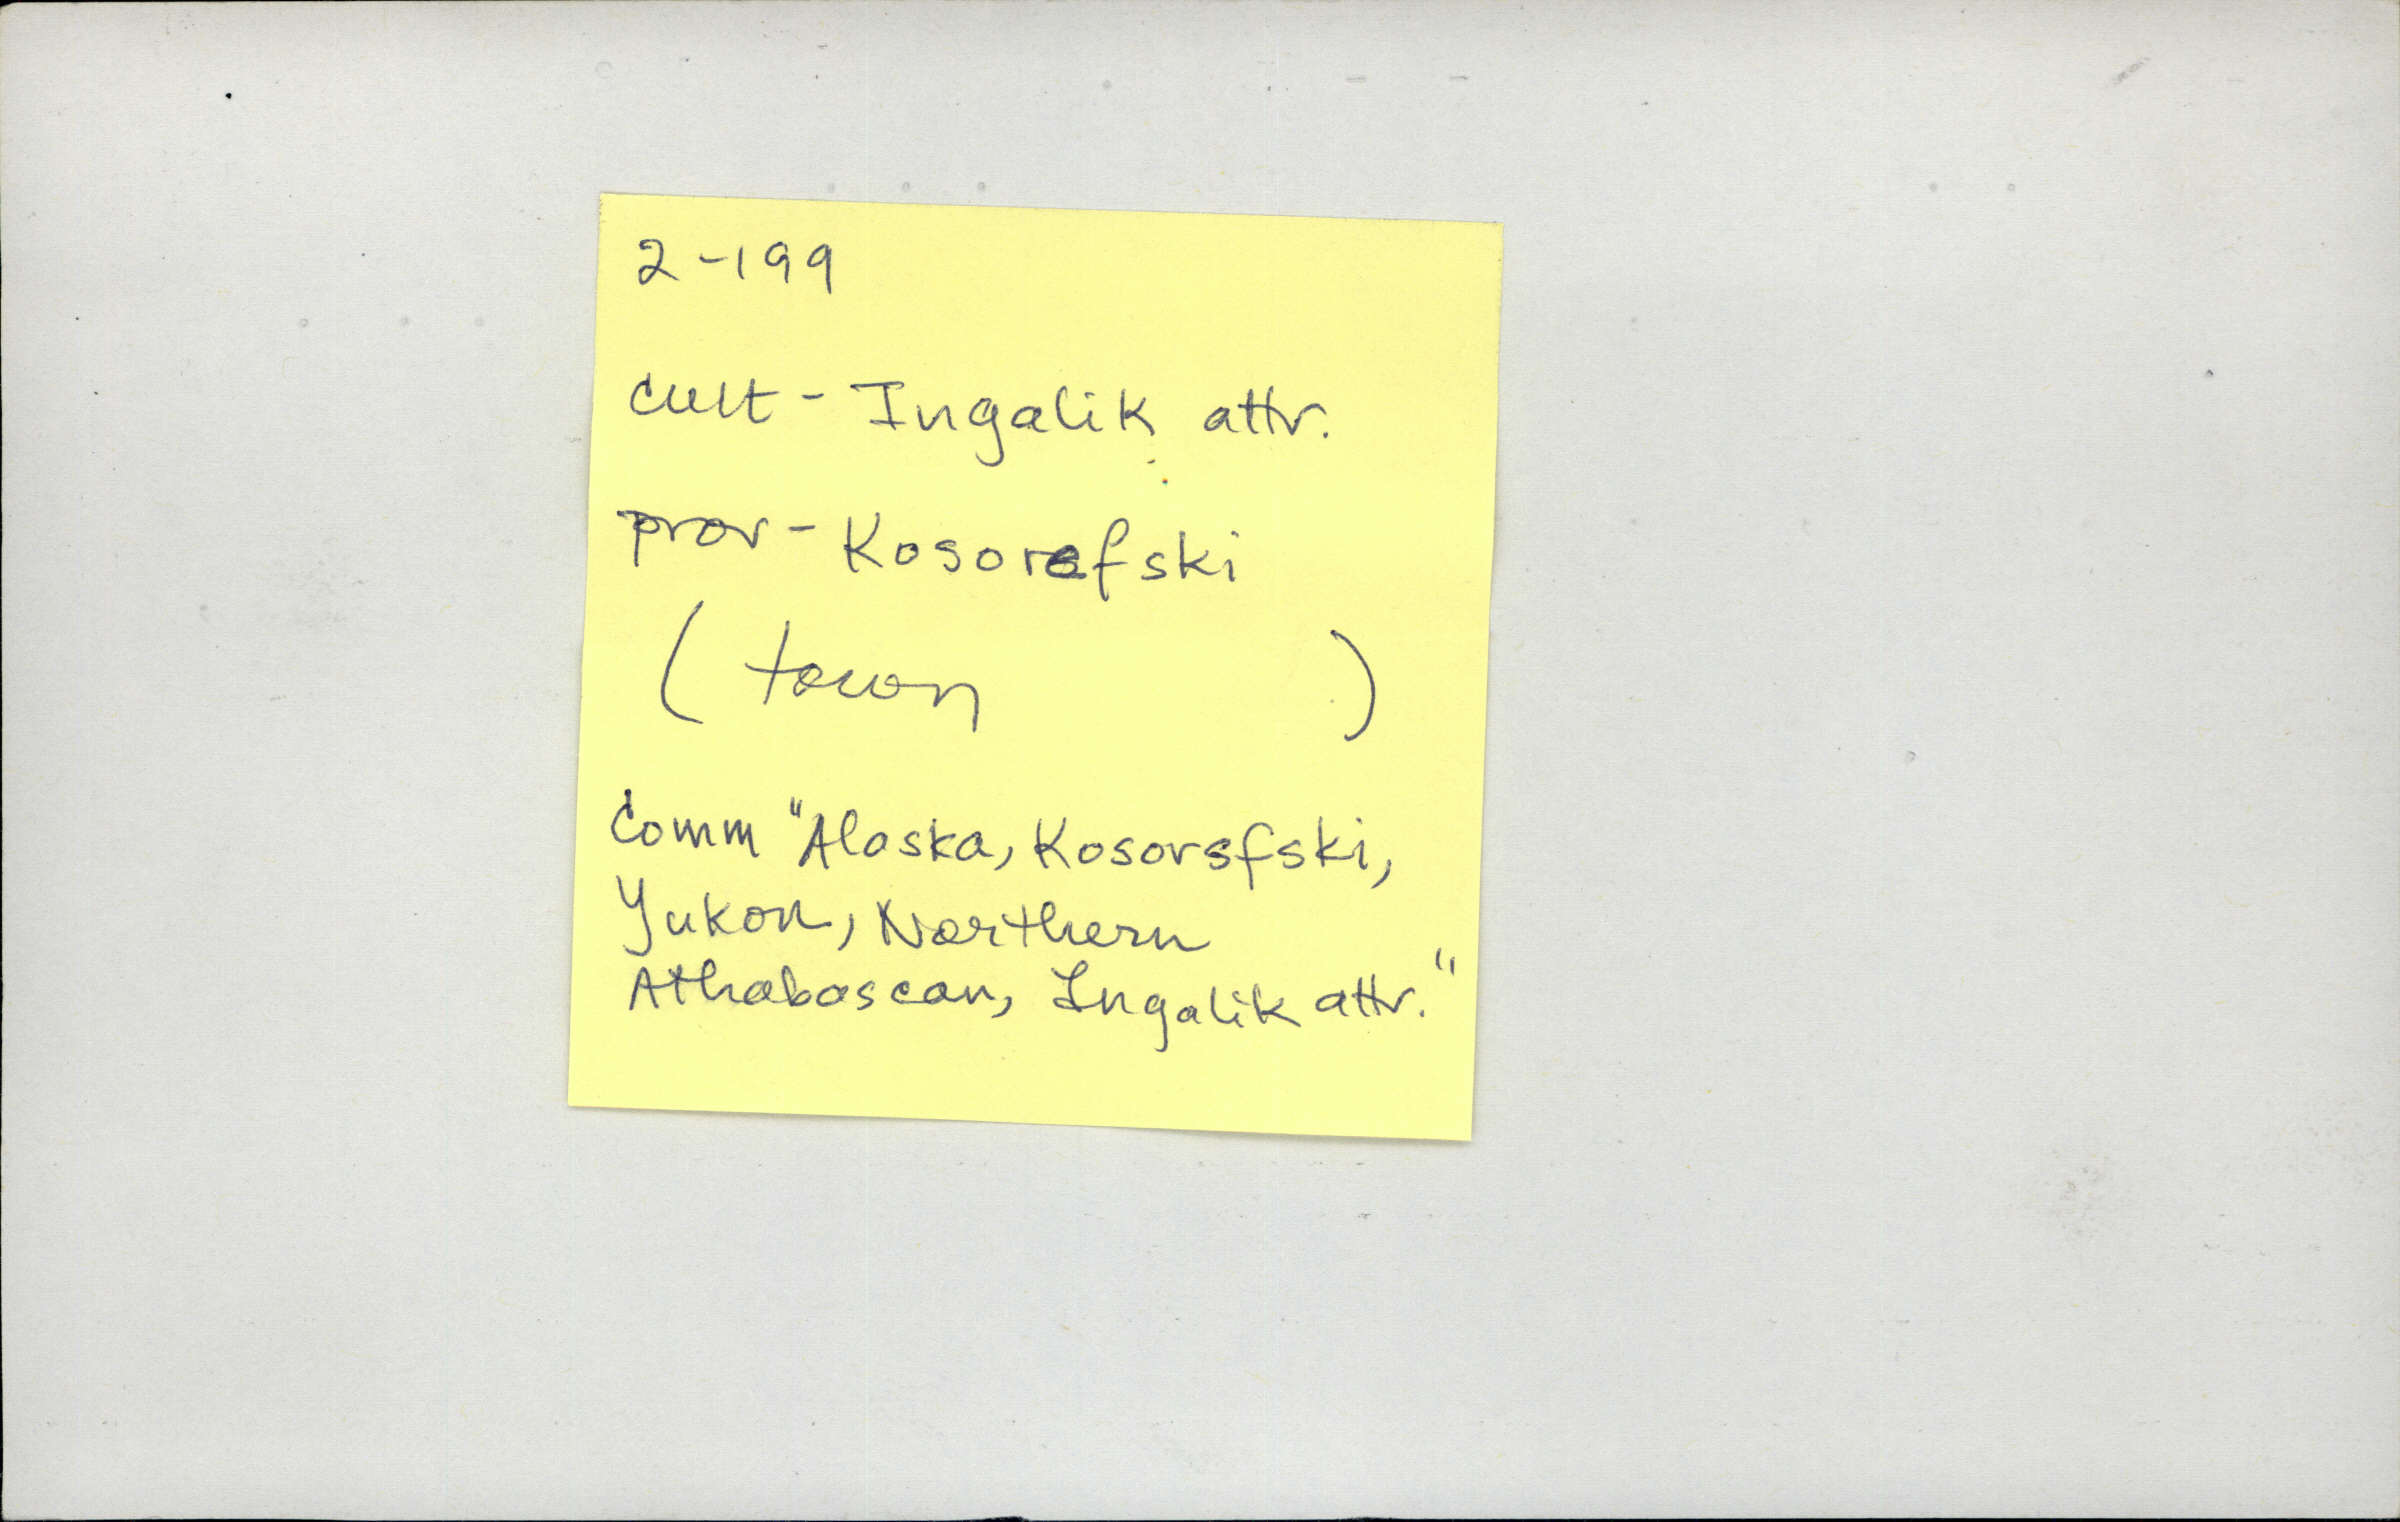 2-199
cult - Ingalik attr.
prov - Kosorefski
( town )
Comm "Alaska, Kosorsfski,
Yukon, Northern
Athabascan, Ingalik attr."